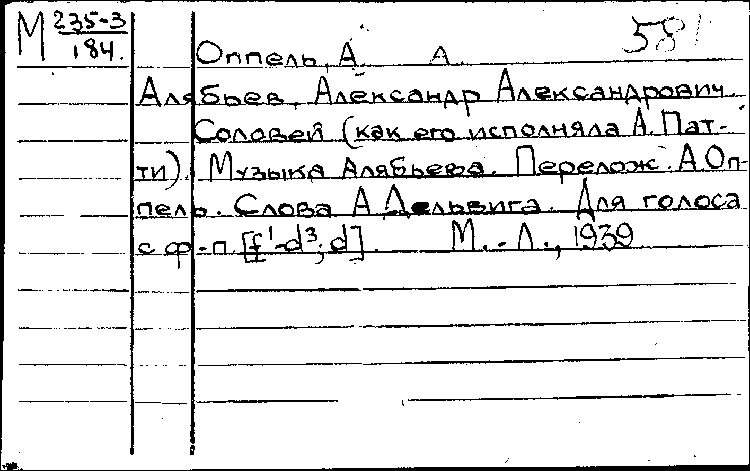 М 235-3
184.
581
Оппель, А. А.
Алябьев, Александр Александрович.
Соловей (как его исполняла А. Пат-
ти). Музыка Алябьева. Перелож. А. Оп-
пель. Слова А. Дельвига. Для голоса
с ф-п. [f¹-d³; d]. М.-Л., 1939